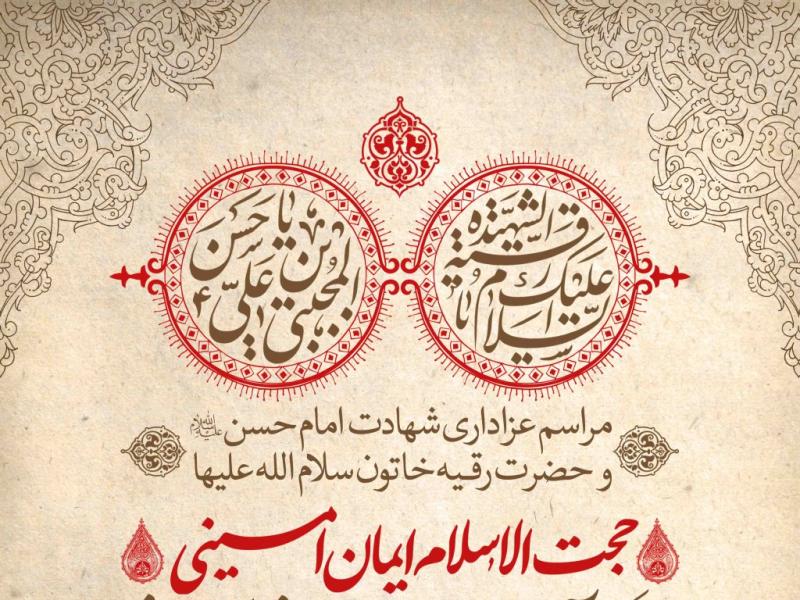 السلام علیک یا رقیة الشهیده
یا حسن بن علی المجتبی
مراسم عزاداری شهادت امام حسن علیه السلام
و حضرت رقیه خاتون سلام الله علیها
حجت الاسلام ایمان امینی